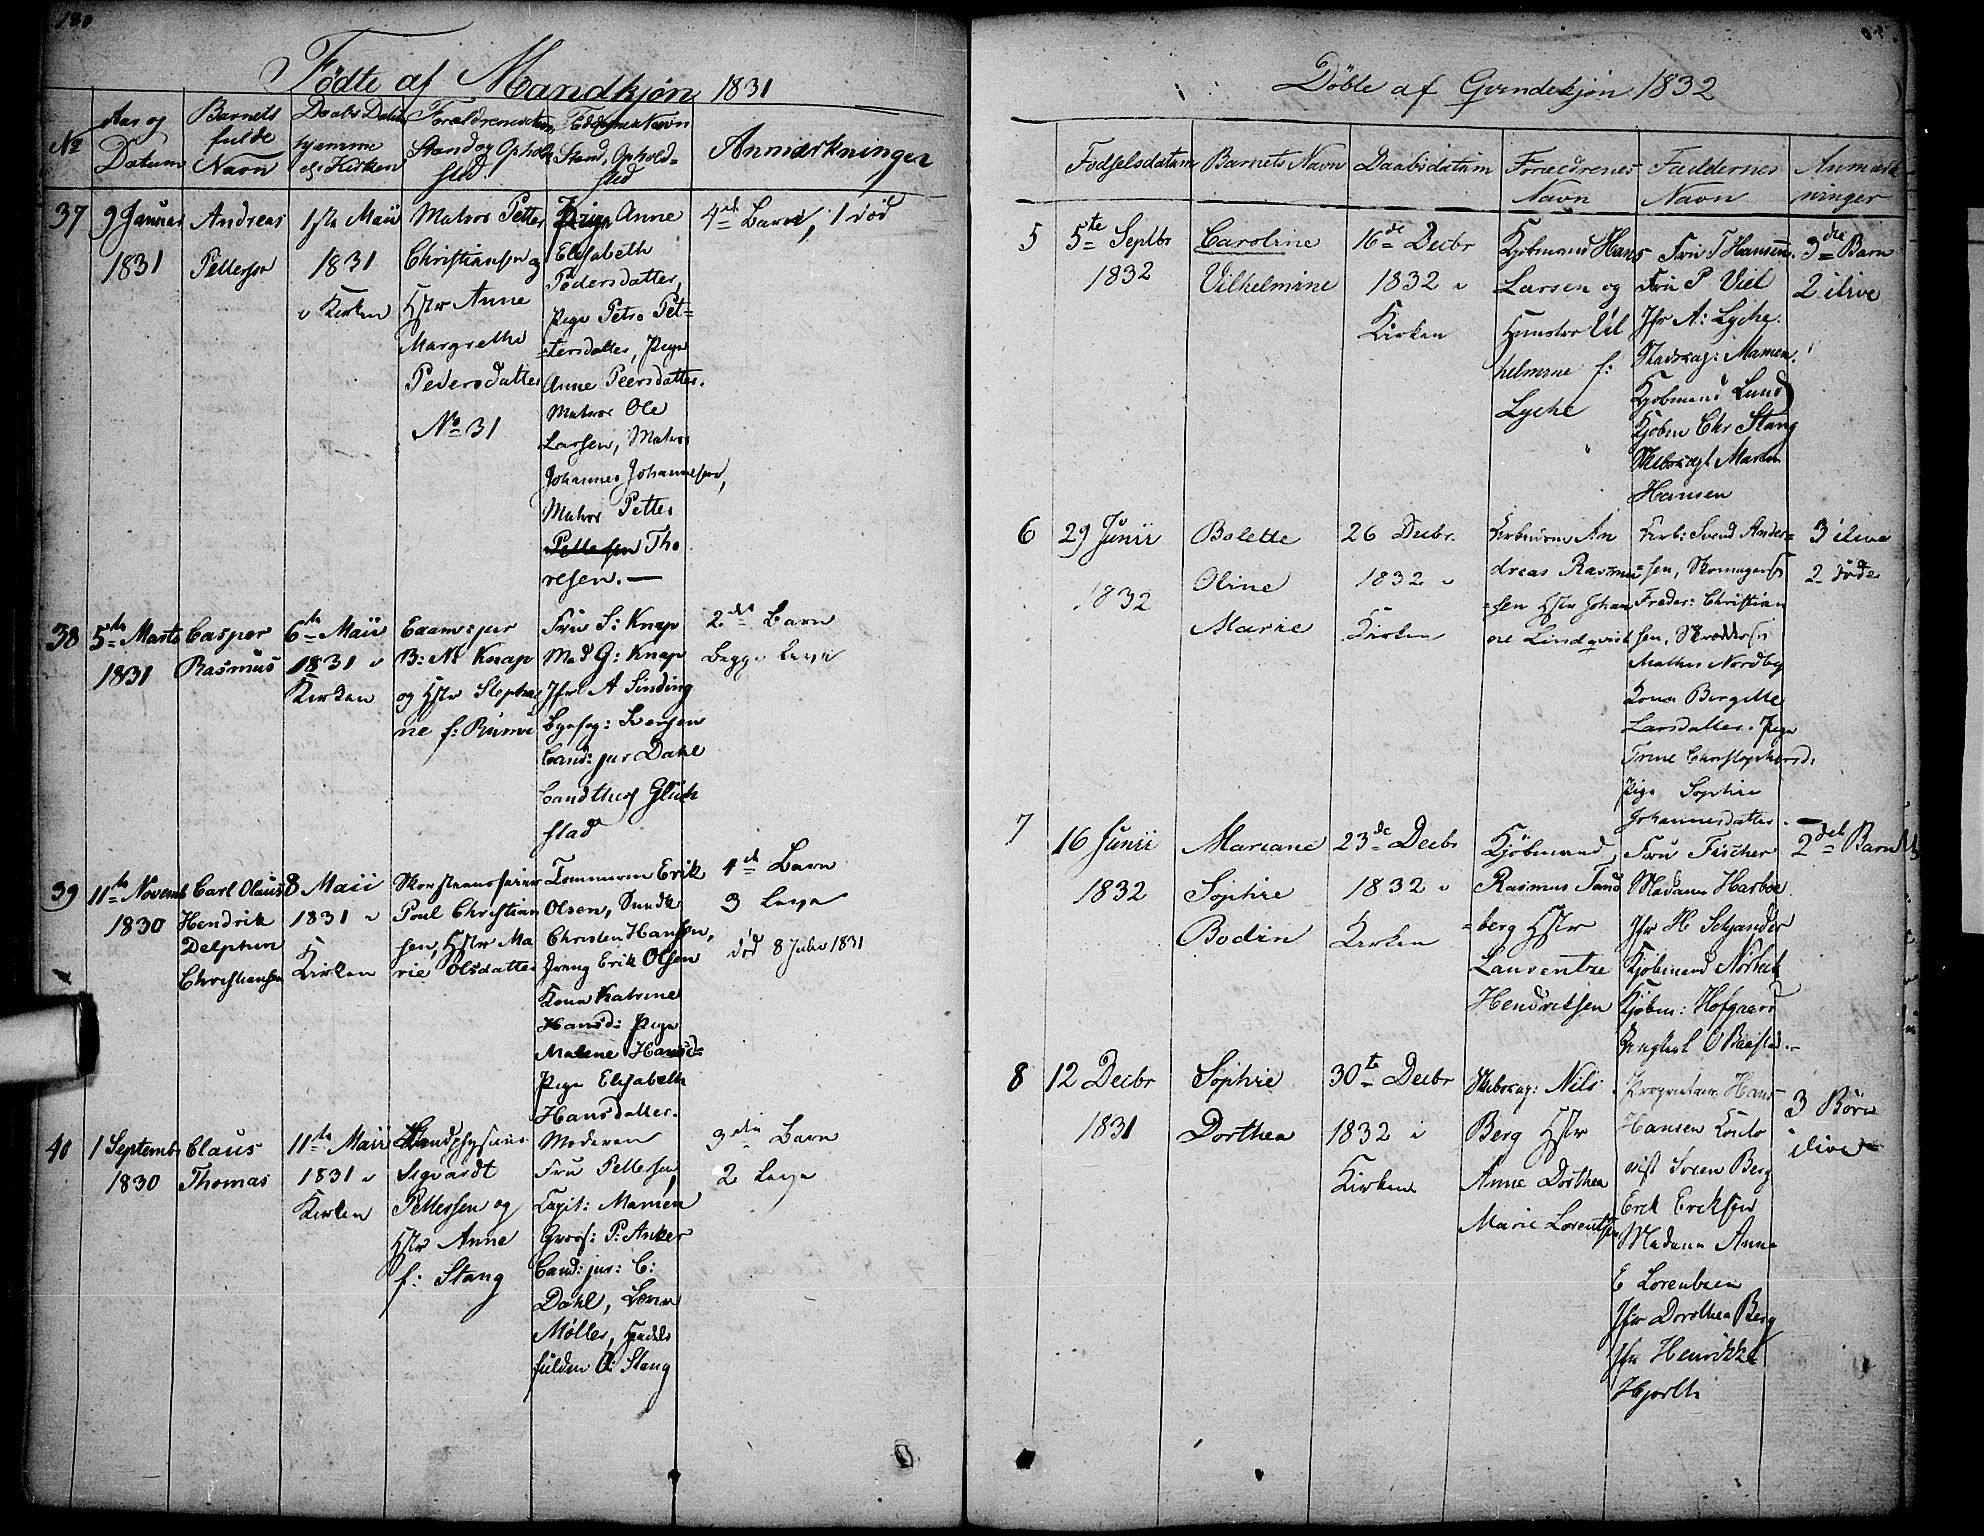 180
Födte af Mandkjøn 1831
No
Aar og
Datum
Barnets
fulde
Navn
Daabs Datum
hjemme
Kirken
Forældrenes
Stand og Ophold
sted
Faddernes Navn
Stand, Ophold-
sted
Anmærkninger
37
9 Januar
1831
Andreas
Pettersen
1ste Maii
1831
i Kirken
Matros Petter
Christiansen og
Hstr Anne
Margrethe
Pedersdatter
No 31
Pige Anne
Elisabeth
Pedersdatter,
Pige Petro Pet-
tersdatter, Pige
Anne Peersdatter.
Matros Ole
Larsen, Matros
Johannes Johannesen,
Matros Petter
Pettersen Tho
resen. —
4de Barn, 1 död
38
5te Marts
1831
Casper
Rasmus
6te Maii
1831 i
Kirken
Exam: jur
B: M: Knap
og Hstr Stepha
ne f:
Fru S: Knap
Mad G: Knap
Jfr A Sinding
Byefog: Iversen
Cand: jur Dahl
Cand theol Glück
stad
2det Barn
Begge leve
39
11te Novemb
1830
Carl Olaus
Hendrik
Delphin
Christiansen
8 Maii
1831 i
Kirken
Skorsteensfeier
Poul Christian
sen, Hstr Ma
rie Olsdatter
Tømmerm Erik
Olsen,
Christen Hansen,
Dreng Erik Olsen
Kone Katrine
Hansd: Pige
Malene Hansd-
Pige Elisabeth
Hansdatter.
4de Barn
3 leve
död 8 Julii 1831
40
1 Septembr
1830
Claus
Thomas
11te Maii
1831 i
Kirken
Landphysicus
Sigvardt
Pettersen og
Hstr Anne
f: Stang
Moderen
Fru Pettersen,
Capit: Mamen
Gross: P: Anker
Cand: jur: C:
Dahl,
Møller, Handels
fulden O: Stang
3die Barn
2 leve
Döbte af Qvindekjön 1832
Fødselsdatum
Barnets Navn
Daabsdatum
Forældrenes
Navn
Faddernes
Navn
Anmærk
ninger
5
5te Septbr
1832
Caroline
Vilhelmine
16de Decbr
1832 i
Kirken
Kjøbmand Hans
Larsen og
Hunstro Vil
helmine f:
Lyche
Fru T Hansen
Fru P Viel
Jfr A: Lyche.
Stadscap: Mamen.
Kjøbmand Lund
Kjøbm Chr Stang
Skibscapt Martin
Hansen
3die Barn
2 ilive
6
29 Junii
1832
Bolette
Oline
Marie
26 Decbr.
1832 i
Kirken
An
dreas Rasmu
sen Hstr Johan
ne Lindqvist
Arb: Svend Ander-
sen, Skomagers
Freder: Christian
sen, Skrædders
Mathis Nordby
Kone Bergitte
Larsdatter. Pige
Trine Christophersd:
Pige Sophie
Johannesdatter. —
3 ilive
2 døde
7
16 Junii
1832
Mariane
Sophie
Bodin
23de Decbr
1832 i
Kirken
Kjöbmand
Rasmus Tand
berg Hstr
Laurentze
Hendriksen
Fru Fischer
Madame Harboe
Jfr H Schjander
Kjøbmand Norbek
Kjøbm: Hofgaard
2det Barn
8
12 Decbr
1831
Sophie
Dorthea
30te Decbr
1832 i
Kirken
Skibscap: Nils
Berg Hstr
Anne Dorthea
Marie Lorentsen
Proprietair Hans
Hansen Conto
rist Soren Berg
Erik Eriksen
Madame Anne
E Lorentzen
Jfr Dorothea Berg
Jfr Henrikke
Hjorth
3 Børn
ilive